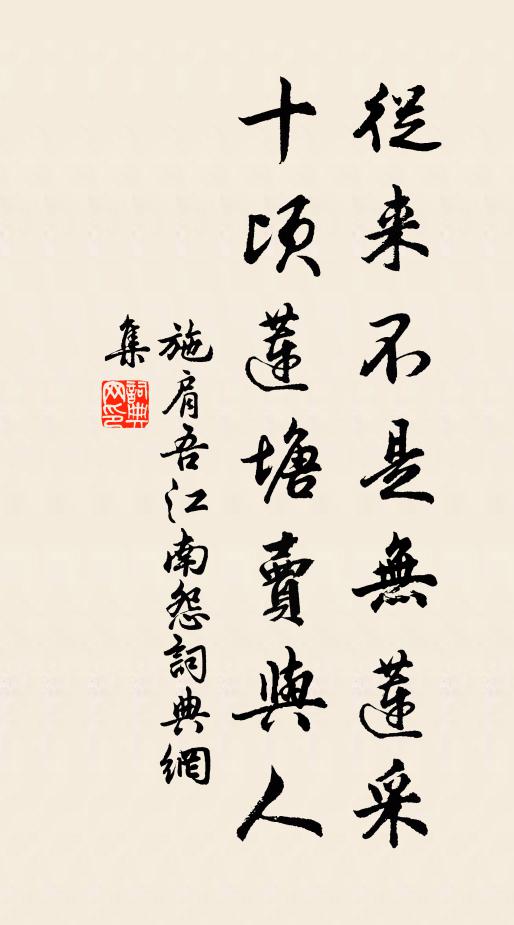 從来不是無蓮采
十頃蓮塘賣與人
施肩吾江南怨詞典網
集
詞典網印